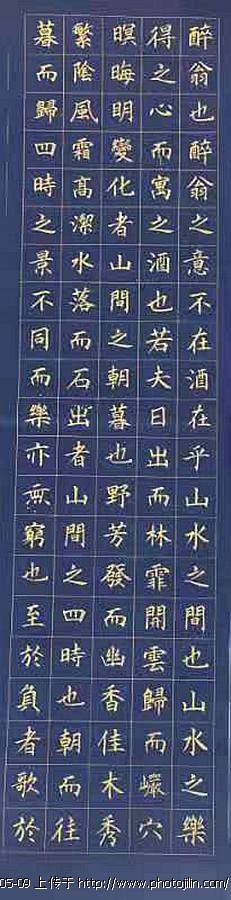 醉翁也醉翁之意不在酒在乎山水之間也山水之樂
得之心而寓之酒也若夫日出而林霏開雲歸而巖穴
暝晦明變化者山間之朝暮也野芳發而幽香佳木秀
繁陰風霜高潔水落而石出者山間之四時也朝而往
暮而歸四時之景不同而樂亦無窮也至於負者歌於
05-09 上传于 http://www.photojilin.com/